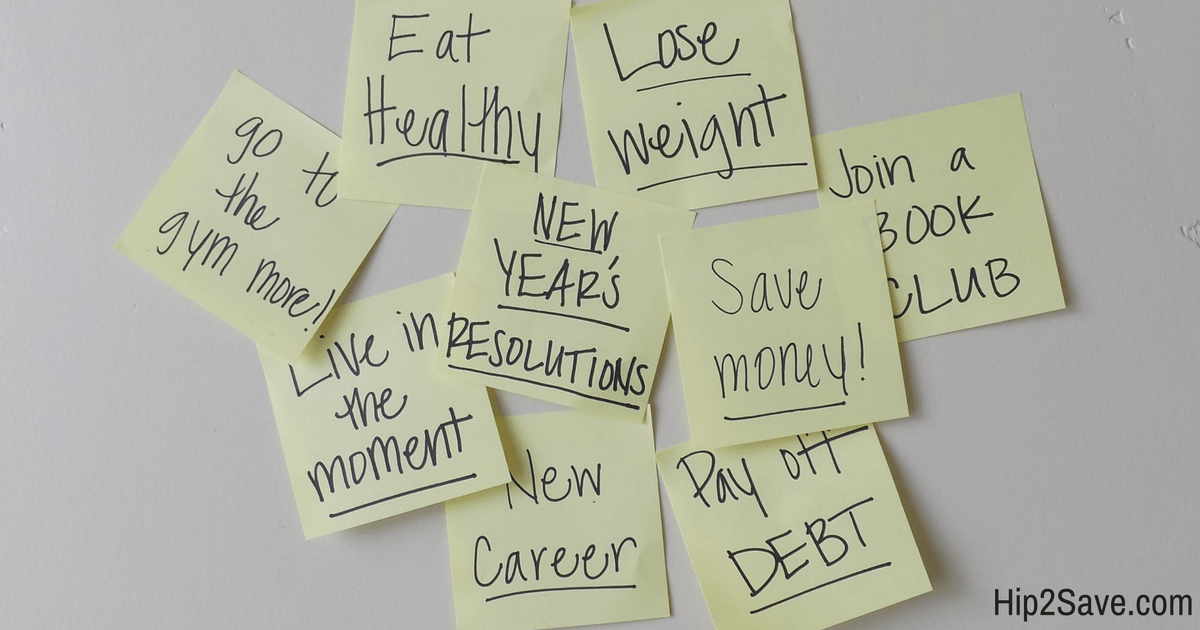 Eat
Healthy
Lose
weight
go to
the
gym more!
Join a
BOOK
CLUB
NEW
YEAR'S
RESOLUTIONS
Save
money!
Live in
the
moment
New
Career
Pay off
DEBT
Hip2Save.com